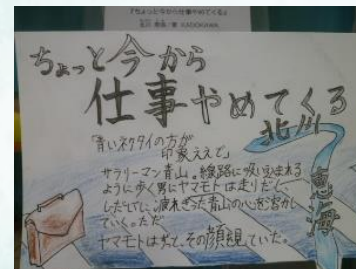 『ちょっと今から仕事やめてくる』
北川 恵海/著 KADOKAWA
ちょっと今から
仕事やめてくる
北川恵海
「青いネクタイの方が
印象ええで」
サラリーマン青山。線路に吸い込まれる
ように歩く男にヤマモトは走りだし、
しだいに、疲れきった青山の心を溶かし
ていく。ただ
ヤマモトは、その顔
ていた。